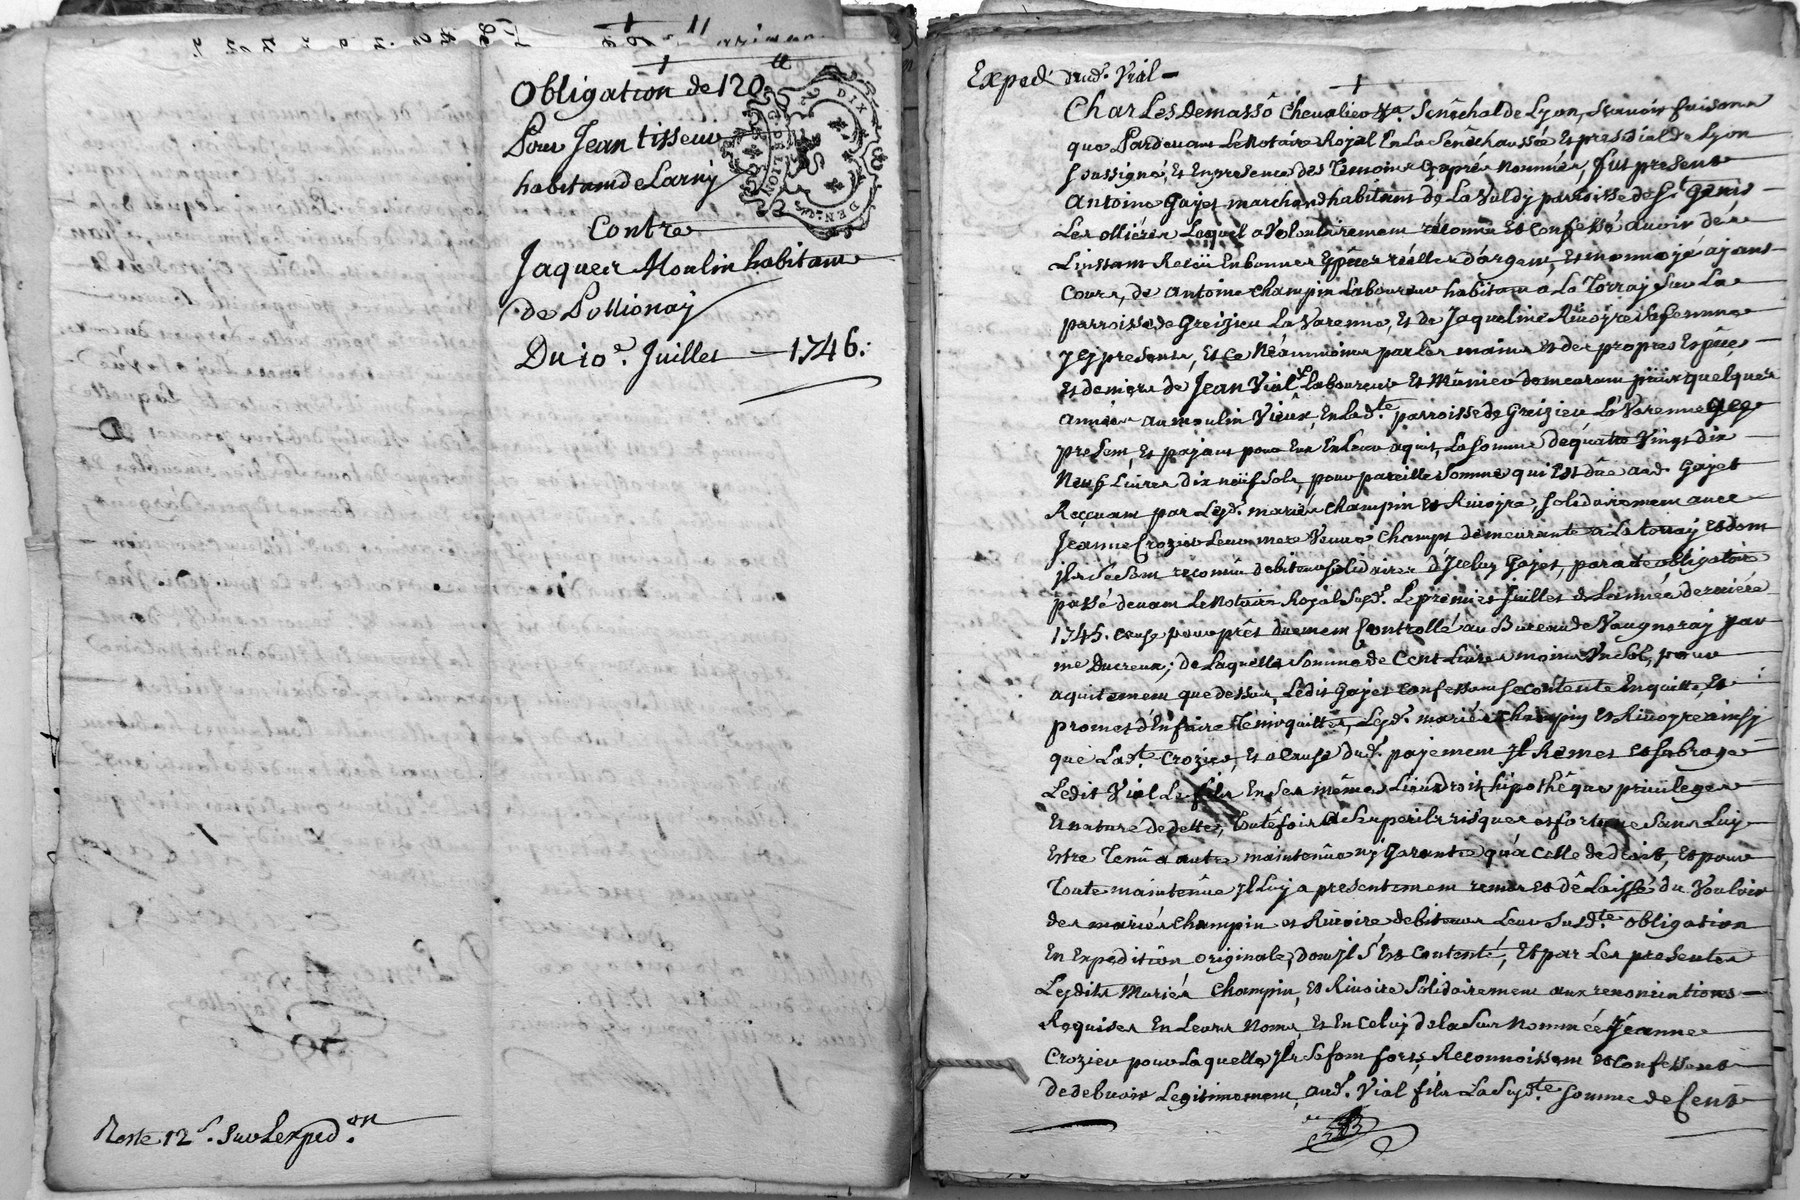 Obligation de 120ᵗᵗ
Pour Jean tisseur
habitant de Larny
Contre
Jaques Moulin habitant
de Pollionaÿ
Du 10ᵉ. Juillet 1746.
G. DE LION
DIX DEN.
Reste 12ˢ. Sur Lexped.ᵒⁿ
Exped. aud. Vial
Charles Demasso Chevalier Sénéchal de Lyon, Scavoir faisons
que Pardevant Le Notaire Royal En La Sénéchaussée Et presidial de Lyon
Soussigné, Et En presence des Temoins Cy aprés nommés, fut present
Antoine Gayet marchand habitant de La Valdy parroisse de S.ᵗ Genis
Les ollières Lequel a volontairement reconnu Et confessé avoir dés
L'instant Receü En bonnes Espéces réelles d'argent, Et monnoyé ayant
Cours, de Antoine Champin Laboureur habitant a La Torray Sur La
parroisse de Greizieu La Varenne, Et de Jaqueline Rivoyre Sa femme
ycy presents, Et ce Néanmoins par Les mains Et des propres Espéces
Et deniers de Jean Vial Laboureur Et Mûnier demeurant puis quelques
années au moulin Vieux, En La d.ᵗᵉ parroisse de Greizieu La Varenne ycy
present, Et payant pour Eux En Leur aquit, La Somme de quatre Vingt dix
Neuf Livres dix neüf Sols, pour pareille Somme qui Est dûe aud. Gayet
Reçevant par Lesd. mariés Champin Et Rivoyre, Solidairement avec
Jeanne Crozier Leur mere Veuve Champt demeurante a La torray Et dont
jls Se Sont reconnû debiteurs Solidaires d'Jceluy Gayet, par acte obligatoire
passé devant Le Notaire Royal Susd. Le premier Juillet de L'année derniére
1745. Causé pour prêt duement Controllé au Bureau de Vaugneray par
me Ducreux; de Laquelle Somme de Cent Livres moins Vn Sol, pour
aquitement que dessus, Ledit Gayet confessant Se contente En quitte, Et
promet d'En faire Tenir quittes, Lesd. mariés Champin Et Rivoyre ainsy
que Lad.ᵗᵉ Crozier, Et a Cause dud. payement jl Remet et Subroge
Ledit Vial Le fils En Ses mêmes Lieu, Droit, hipothêque privileges
Et nature de dettes, Toutefois a Ses perils risques et fortune Sans Luy
Estre Tenû d'autre maintenûe ny Garantie qu'a Celle de droit, Et pour
Toute maintenûe jl Luy a presentement remis Et dêLaissé du Vouloir
des mariés Champin et Rivoire debiteurs Leur Susd.ᵗᵉ obligation
En Expedition originale, dont jl S'Est Contenté, Et par Les presentes
Lesdits Mariés Champin, Et Rivoire Solidairement aux renonciations
Requises En Leurs Noms, Et En Celuy de La Sus Nommée Jeanne
Crozier pour Laquelle jls Se font forts, Reconnoissent et confessent
de debvoir Legitimement, aud. Vial fils La Susd.ᵗᵉ Somme de Cent